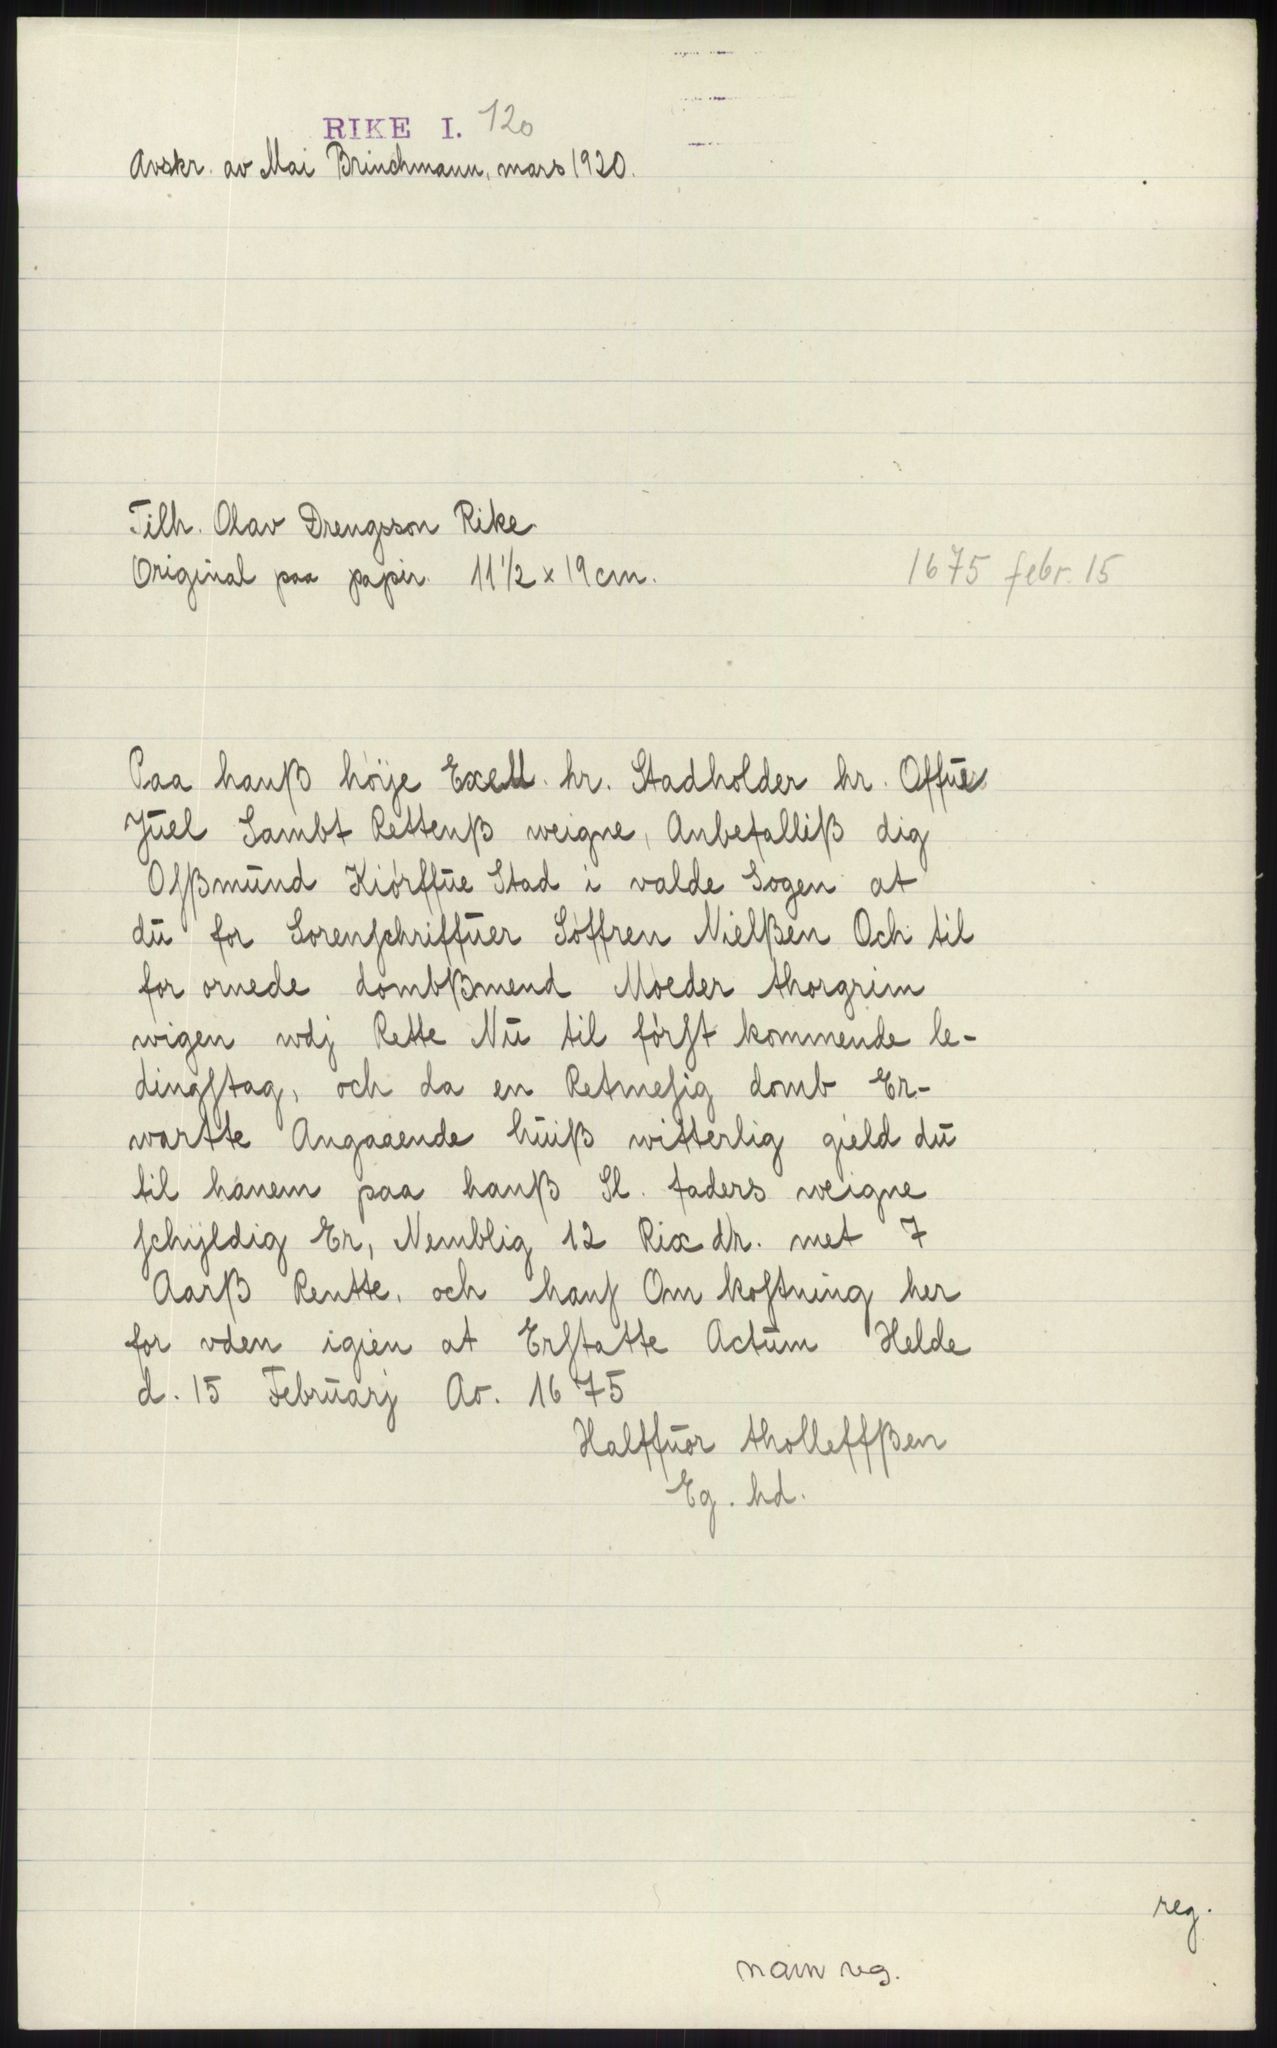 RIKE I. 120
Avskr. av Mai Brinchmann, mars 1920.
Tilh. Olav Drengsson Rike
Original paa papir. 11 1/2 x 19 cm.
1675 febr. 15
Paa hanß höÿe Exell. hr. Stadholder hr. Offue
Juel Sambt Rettenß weigne, Anbefalliß dig
Oſßmund Kiörffue Stad i valde Sogen at
du for Sorenſchriffuer Söffren Nielßen Och til
for ornede dombßmend Möeder thorgrim
wigen wdj Rette Nu til förſt kommende le-
dingſtag, och da en Retmeſig domb Er-
wartte Angaaende huiß witterlig gield du
til hanem paa hanß Sl. faders weigne
ſchÿldig Er, Nemblig 12 Rix dr. met 7
Aarß Rentte, och hanſ Om koſtning her
for vden igien at Erſtatte Actum Helde
d. 15 Februarj Ao. 1675
Halffuor tholleffßen
Eg. hd.
reg.
navn reg.